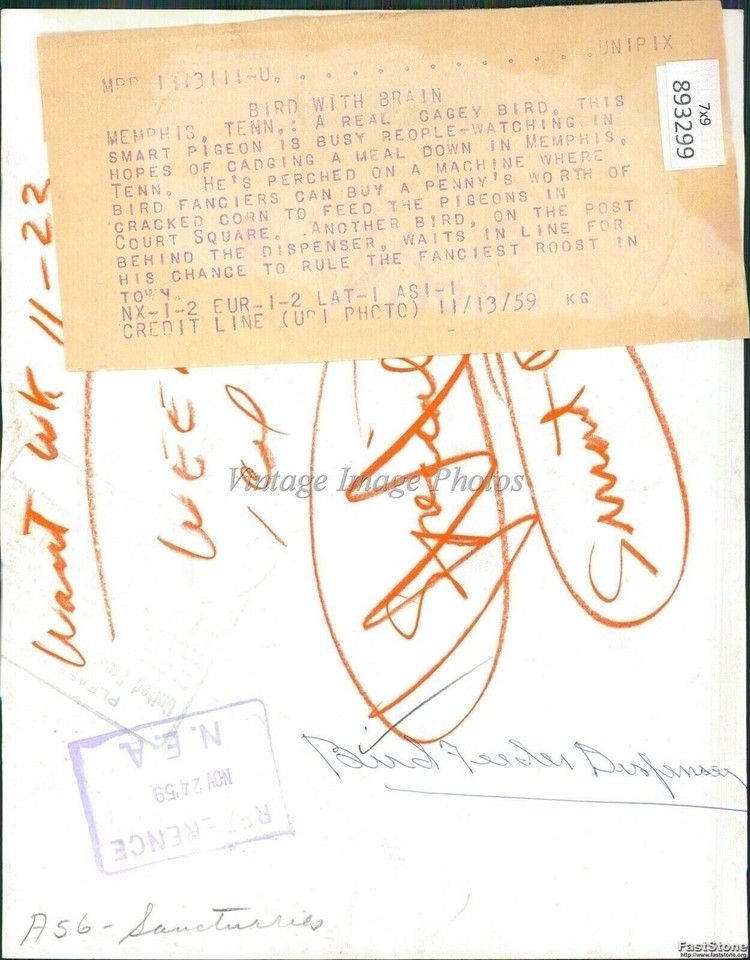 MPD 1113111-U. . . . . . . . . . . . . .UNIPIX
BIRD WITH BRAIN
MEMPHIS, TENN.: A REAL CAGEY BIRD, THIS
SMART PIGEON IS BUSY PEOPLE-WATCHING IN
HOPES OF CADGING A MEAL DOWN IN MEMPHIS,
TENN. HE'S PERCHED ON A MACHINE WHERE
BIRD FANCIERS CAN BUY A PENNY'S WORTH OF
CRACKED CORN TO FEED THE PIGEONS IN
COURT SQUARE. ANOTHER BIRD, ON THE POST
BEHIND THE DISPENSER, WAITS IN LINE FOR
HIS CHANCE TO RULE THE FANCIEST ROOST IN
TOWN.
NX-1-2 EUR-1-2 LAT-1 ASI-1
CREDIT LINE (UPI PHOTO) 11/13/59 KG
7x9
893299
Want wk 11-22
Vintage Image Photos
PLEASE
United Press
N.E.A.
NOV 24 '59
REFERENCE
Bird Feeder Dispenser
A56- Sanctuaries
FastStone
http://www.faststone.org